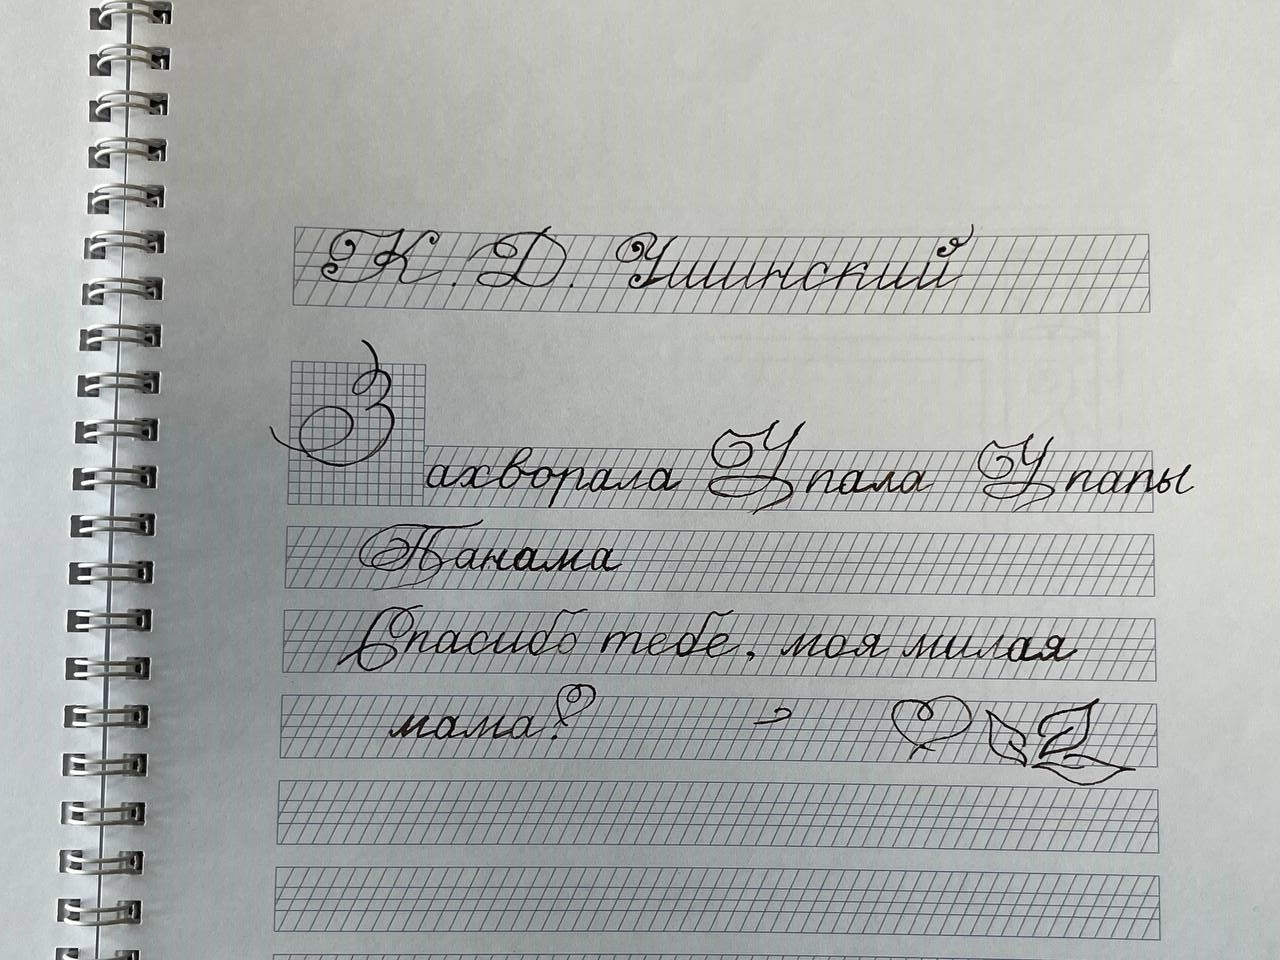 К. Д. Ушинский
Захворала Упала У папы
Панама
Спасибо тебе, моя милая
мама!